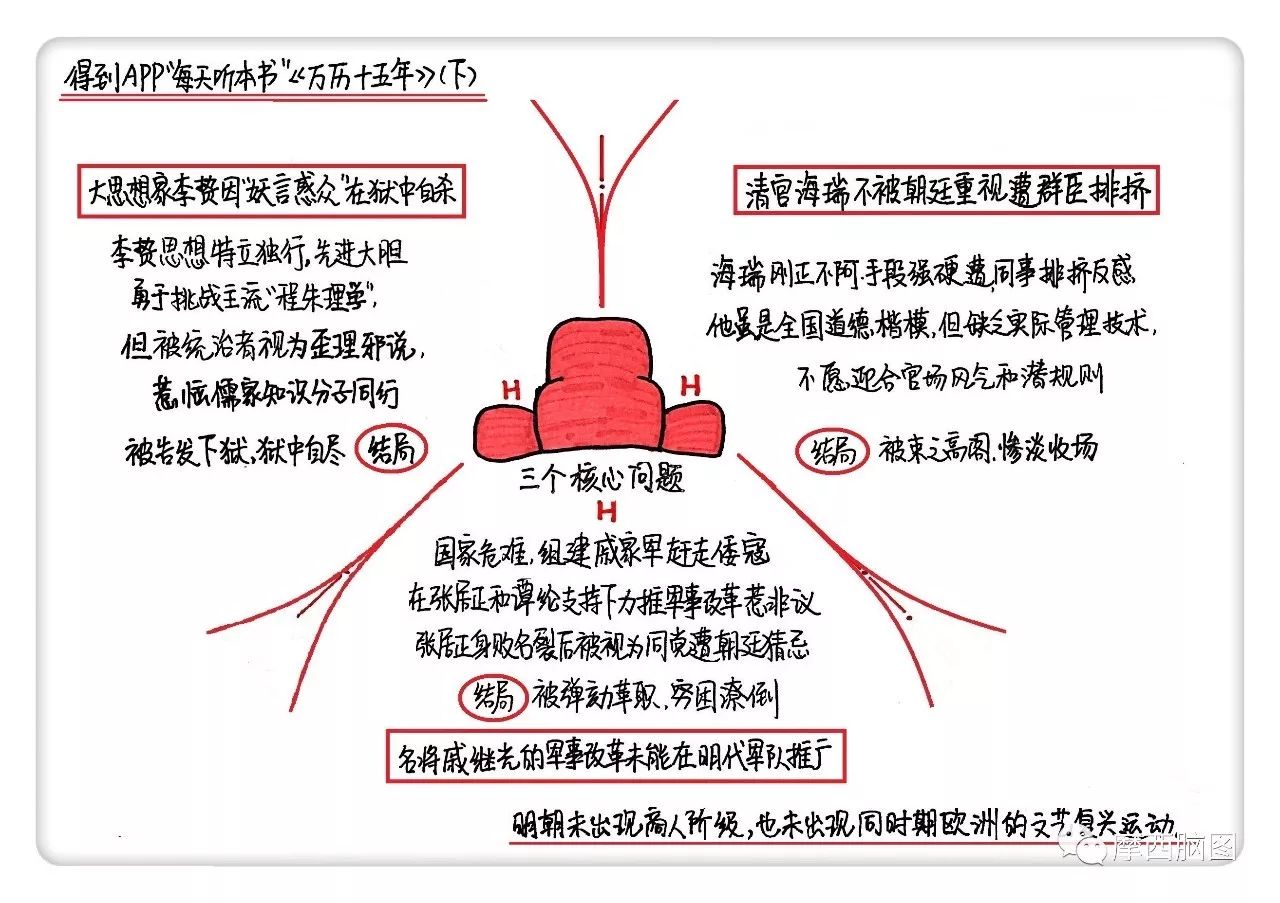 得到APP“每天听本书”《万历十五年》(下)
大思想家李贽因“妖言惑众”在狱中自杀
李贽思想特立独行,先进大胆
勇于挑战主流“程朱理学”,
但被统治者视为歪理邪说,
惹恼儒家知识分子同行
被告发下狱,狱中自尽 结局
清官海瑞不被朝廷重视遭群臣排挤
海瑞刚正不阿.手段强硬遭同事排挤反感
他虽是全国道德楷模,但缺乏实际管理技术,
不愿迎合官场风气和潜规则
结局 被束之高阁.惨淡收场
H H
三个核心问题
H
国家危难,组建戚家军赶走倭寇
在张居正和谭纶支持下力推军事改革惹非议
张居正身败名裂后被视为同党遭朝廷猜忌
结局 被弹劾革职.穷困潦倒
名将戚继光的军事改革未能在明代军队推广
明朝未出现商人阶级,也未出现同时期欧洲的文艺复兴运动.
摩西脑图